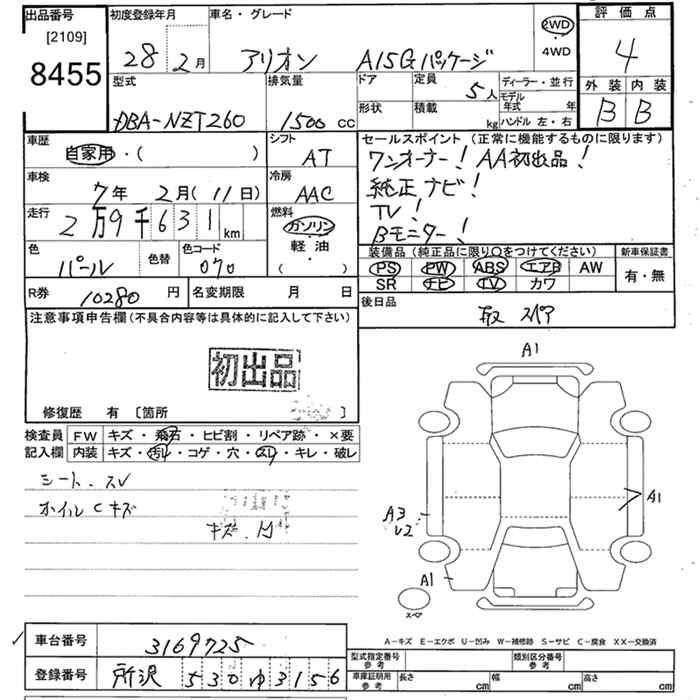 出品番号
[2109]
8455
初度登録年月
28 2月
車名・グレード
アリオン A15Gパッケージ
2WD
・
4WD
評価点
4
外装 内装
B B
型式
DBA-NZT260
排気量
1500 cc
ドア
形状
定員
5人
積載
kg
ディーラー・並行
モデル年式 年
ハンドル 左・右
車歴
自家用・( )
シフト
AT
車検
7年 2月(11日)
冷房
AAC
走行
2万9千631km
燃料
ガソリン
・
軽油
・
( )
色
パール
色替
色コード
070
R券 10280円
名変期限 月 日
セールスポイント(正常に機能するものに限ります)
ワンオーナー! AA初出品!
純正ナビ!
TV!
Bモニター!
装備品(純正品に限り○をつけてください)
PS PW ABS エアB AW
SR ナビ TV カワ
新車保証書
有・無
後日品
取 スペア
注意事項申告欄(不具合内容等は具体的に記入して下さい)
初出品
修復歴 有 〔箇所 〕
検査員記入欄
FW キズ・飛石・ヒビ割・リペア跡・×要
内装 キズ・汚れ・コゲ・穴・スレ・キレ・破レ
シート スレ
ホイルCキズ
キズ
A1
A1
A3
A1
スペア
A-キズ E-エクボ U-凹み W-補修跡 S-サビ C-腐食 XX-交換済
車台番号 3169725
登録番号 所沢 530ゆ3156
型式指定番号
参考
類別区分番号
参考
車庫証明用
参考
長さ cm 幅 cm 高さ cm